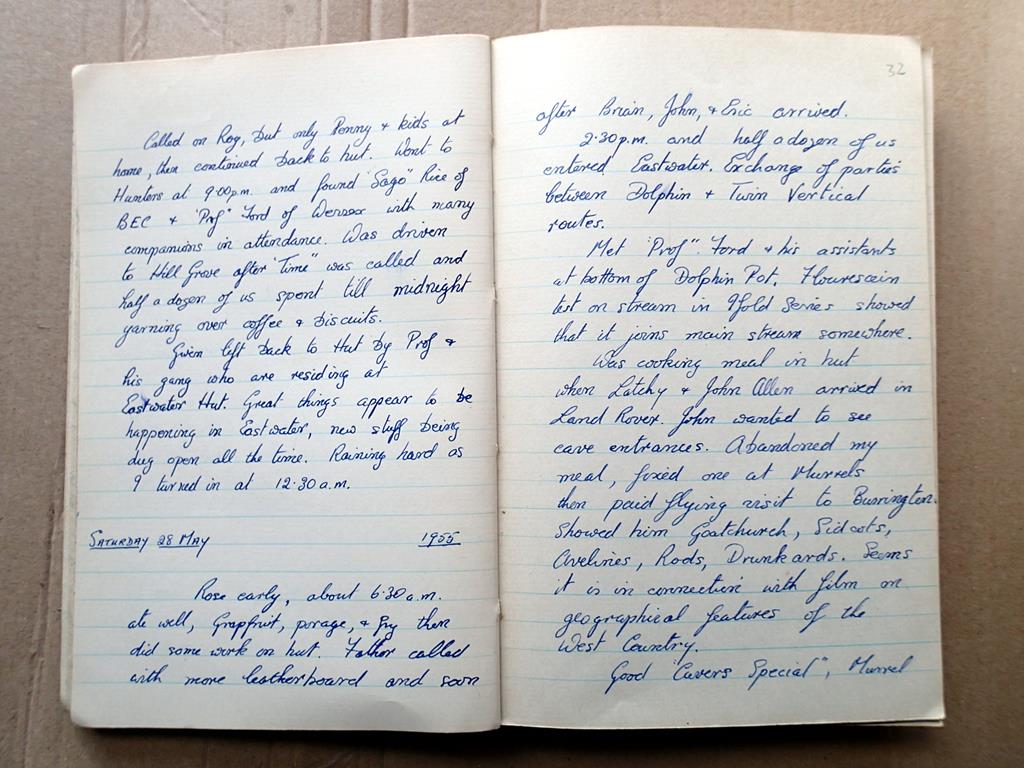 Called on Roy, but only Penny & kids at
home, then continued back to hut. Went to
Hunters at 9.00p.m. and found "Sago" Rice of
BEC & "Prof" Ford of Wessex with many
companions in attendance. Was driven
to Hill Grove after "Time" was called and
half a dozen of us spent till midnight
yarning over coffee & biscuits.
Given left back to Hut by Prof &
his gang who are residing at
Eastwater Hut. Great things appear to be
happening in Eastwater, new stuff being
dug open all the time. Raining hard as
I turned in at 12.30 a.m.
SATURDAY 28 MAY 1955
Rose early, about 6.30 a.m.
ate well, Grapfruit, porage, & fry then
did some work on hut. Father called
with more leatherboard and soon
32
after Brian, John, & Eric arrived.
2.30p.m. and half a dozen of us
entered Eastwater. Exchange of parties
between Dolphin & Twin Vertical
routes.
Met "Prof" Ford & his assistants
at bottom of Dolphin Pot. Flourescein
test on stream in Ifold Series showed
that it joins main stream somewhere.
Was cooking meal in hut
when Latchy & John Allen arrived in
Land Rover. John wanted to see
cave entrances. Abandoned my
meal, fixed one at Murrels
then paid flying visit to Burrington.
Showed him Goatchurch, Sidcots,
Avelines, Rods, Drunkards. Seems
it is in connection with film on
geographical features of the
West Country.
Good "Cavers Special", Murrel